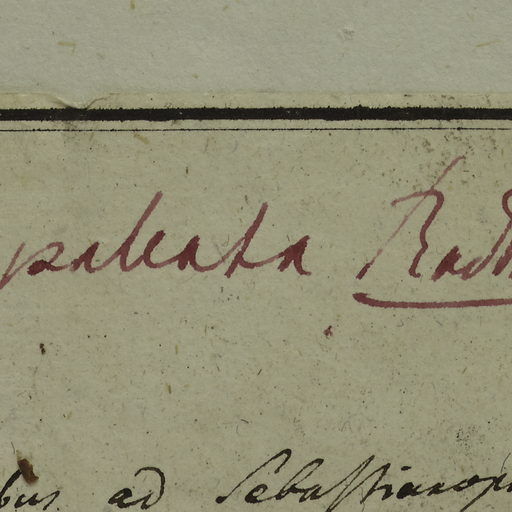 paleata Radd
bus ad Sebastianop